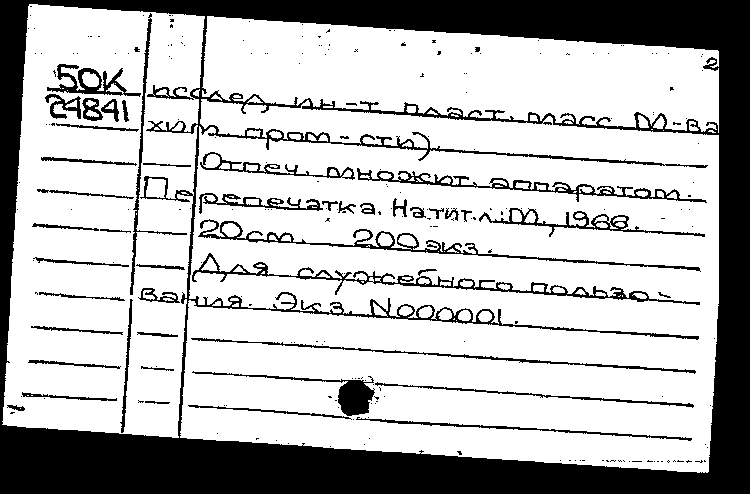 2
50К исслед. ин-т пласт. масс М-ва
24841 хим. пром-сти).
Отпеч. множит. аппаратом.
Перепечатка. На тит. л.: М., 1966.
20 см. 200 экз.
Для служебного пользо-
вания. Экз. N000001.